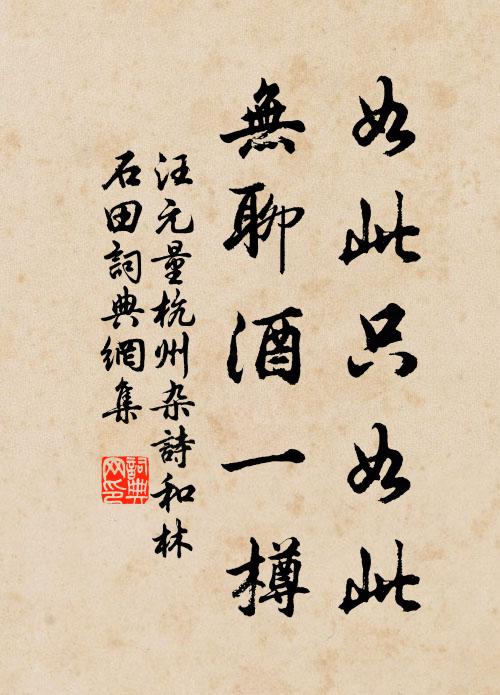 如此只如此
無聊酒一樽
汪元量杭州杂詩和林
石田詞典網集
詞典
网印